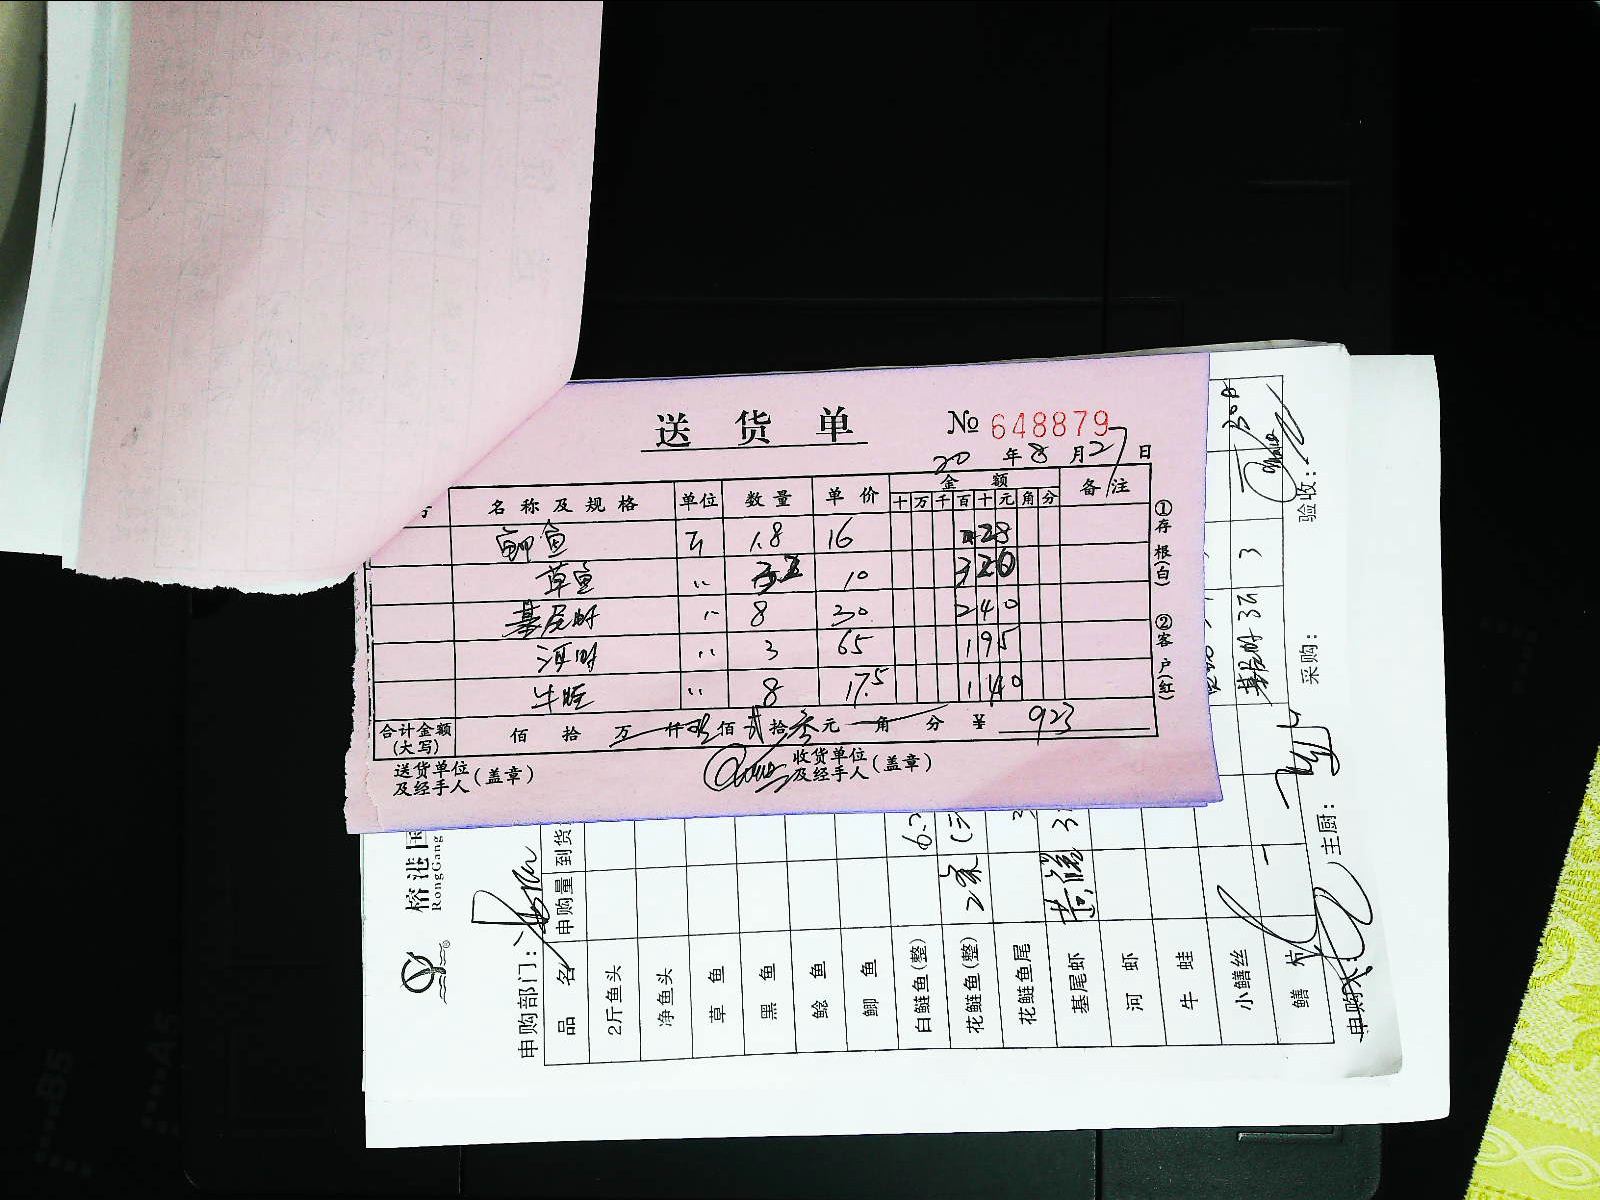 送货单 № 648879
20 年 8 月 27 日
名称及规格 单位 数量 单价 金额 备注
十 万 千 百 十 元 角 分
鲫鱼 斤 1.8 16 28
草鱼 〃 32 10 320
基尾虾 〃 8 30 240
河虾 〃 3 65 195
牛蛙 〃 8 17.5 140
合计金额(大写) 佰 拾 万 仟 玖 佰 贰 拾 叁 元 角 分 ¥ 923
送货单位及经手人(盖章) 收货单位及经手人(盖章)
①存根(白) ②客户(红)
榕港国
RongGang
申购部门:
品名 申购量 到货
2斤鱼头
净鱼头
草鱼
黑鱼
鲶鱼
鲫鱼
白鲢鱼(整)
花鲢鱼(整) 2条
花鲢鱼尾
基尾虾
河虾
牛蛙
小鳝丝
鳝
申购人: 主厨: 采购: 验收: